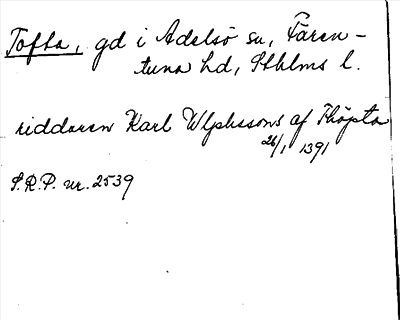 Tofta, gd i Adelsö sn, Fären-
tuna hd, Sthlms l.
riddaren Karl Wlphssons af Thöpta
26/1 1391
S.R.P. nr. 2539